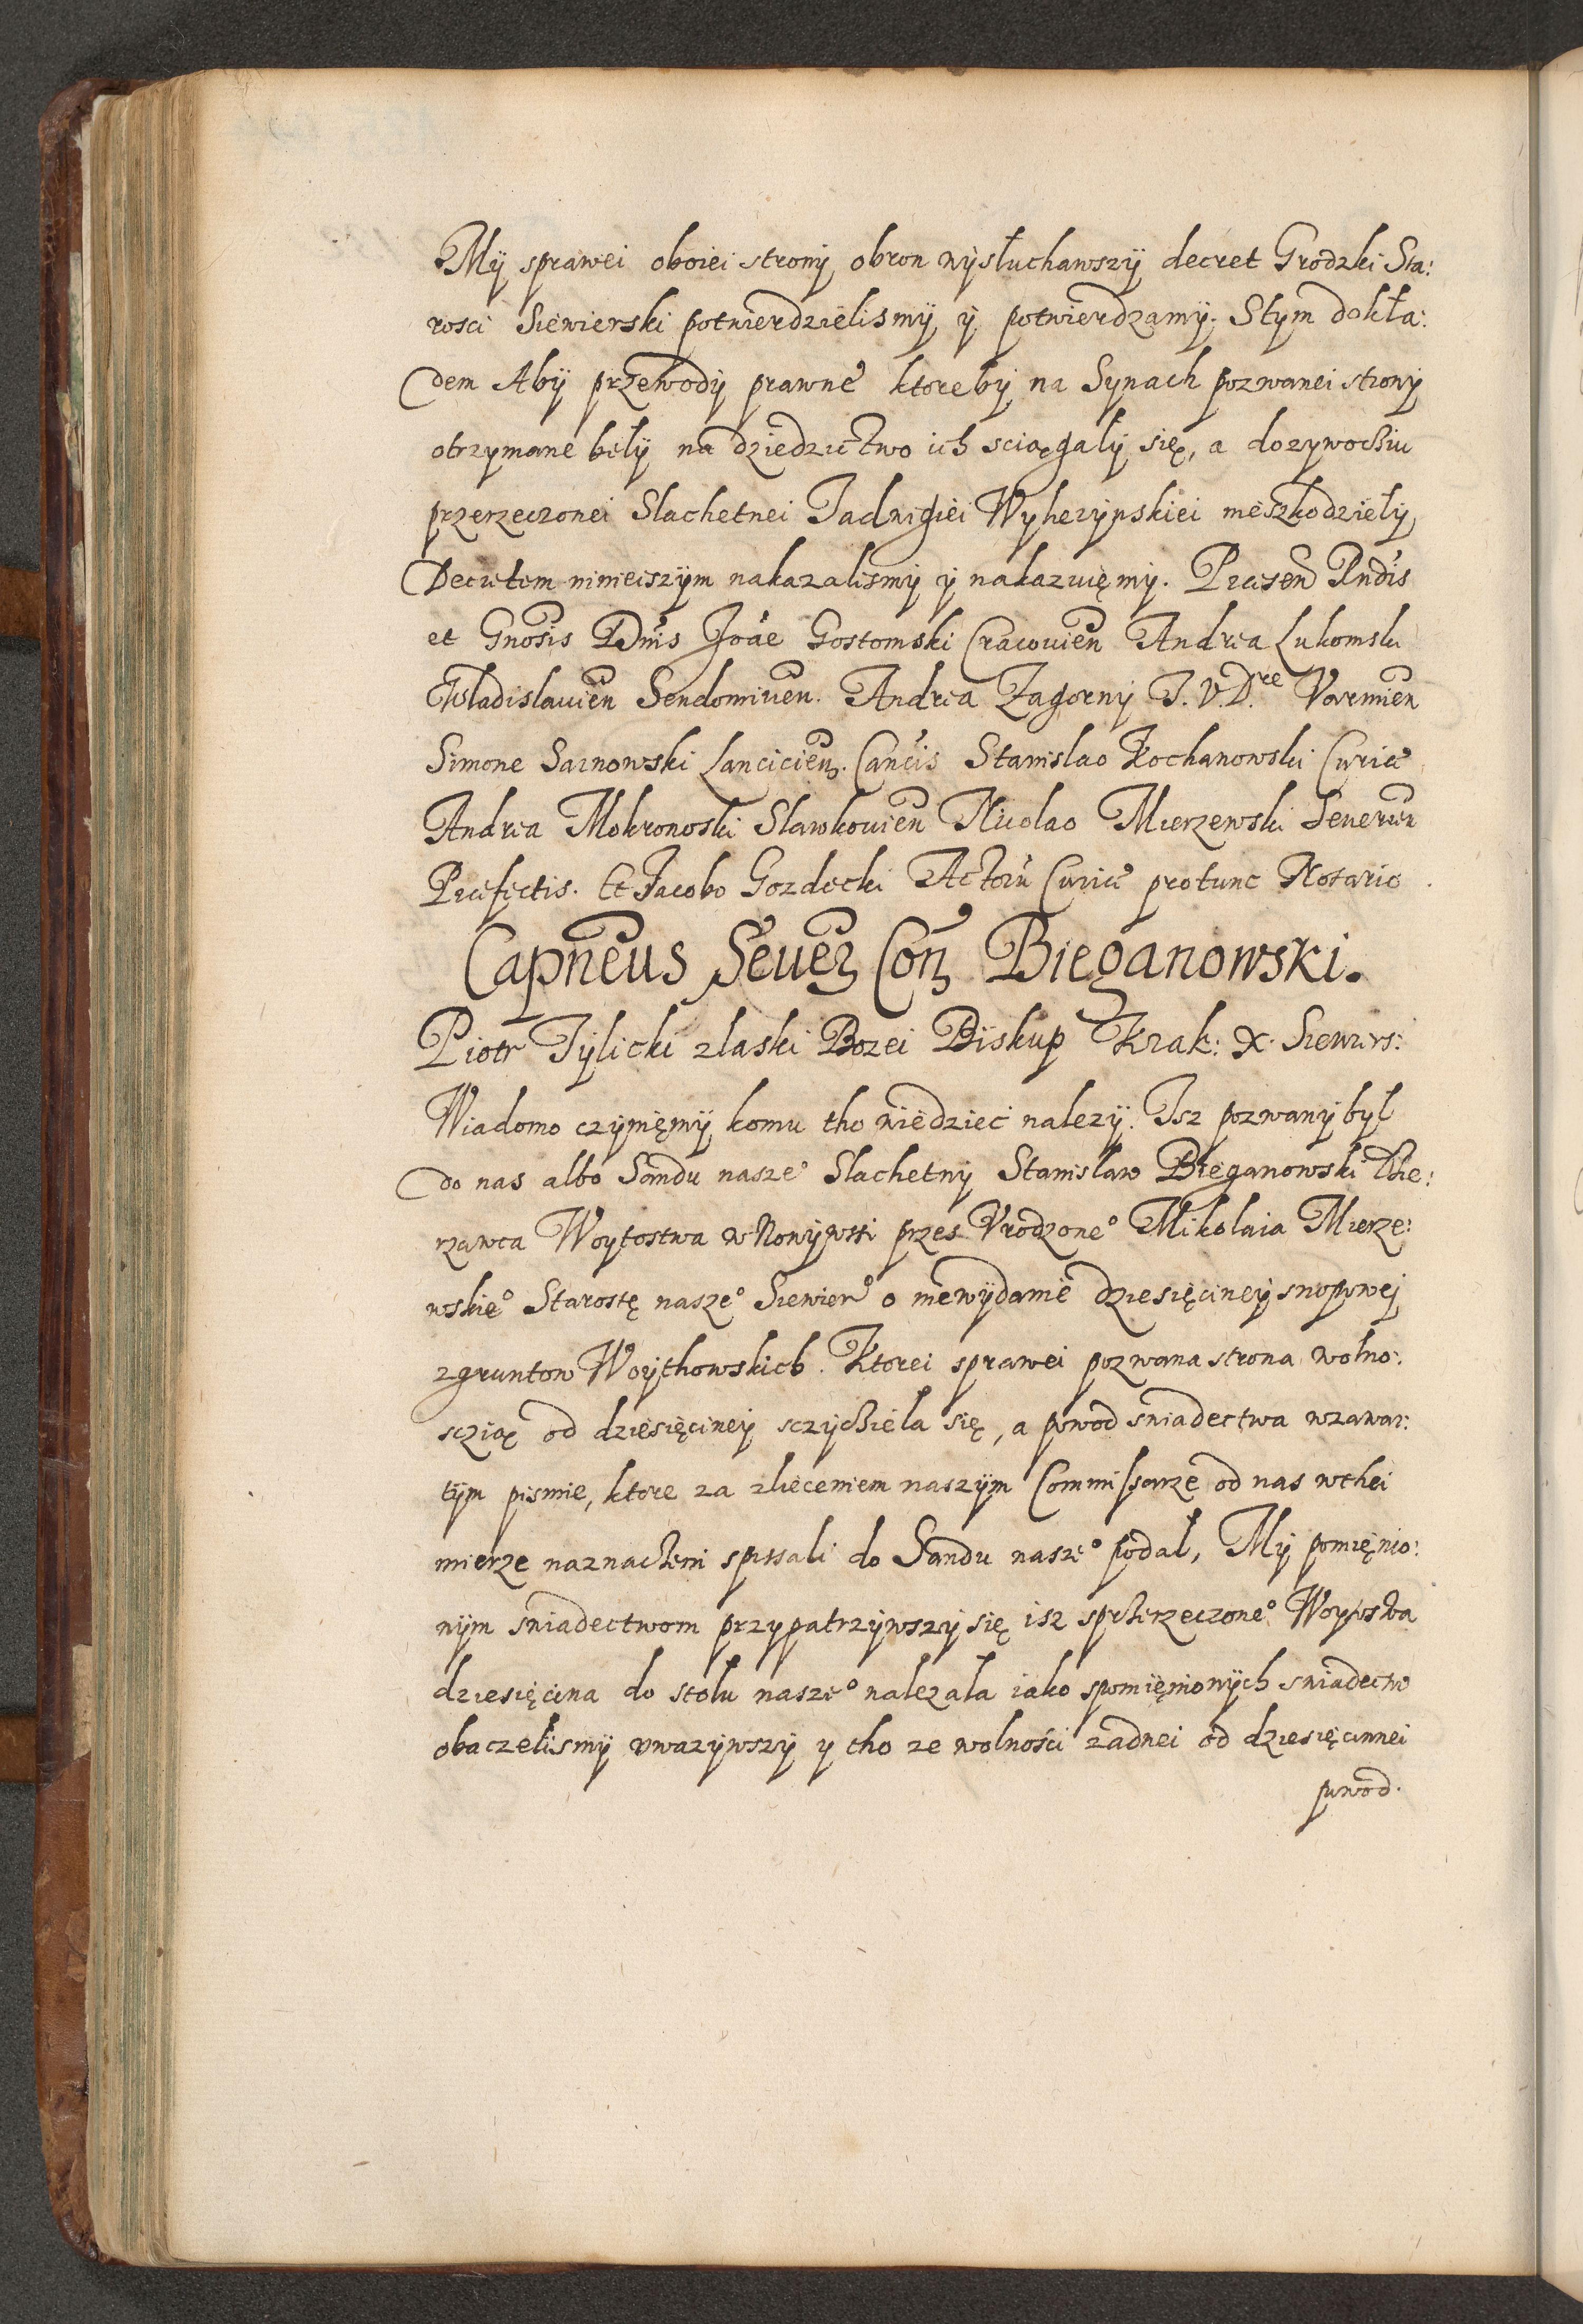 Mÿ sprawei oboiei stronÿ obron wÿsłuchawszÿ decret Grodzki Sta:
rosci Siewierski potwierdzielismÿ ÿ potwierdzamÿ. Stym dokła:
dem Abÿ przewodÿ prawne ktorebÿ na Synach pozwanei stronÿ
otrzymane bełÿ na dziedzictwo ich sciągałÿ się, a dozywociu
przerzeczonei Slachetnei Jadwigiei Wyherÿnskiei nieszkodziełÿ
Decretem ninieiszÿm nakazalismÿ ÿ nakazuięmÿ. Præsen Rndis
et Gnosis Dnis Joãe Gostomski Cracouien Andrea Lukomski
Wladislauien Sendomirien. Andrea Zagornÿ J. V. Dre Varmien
Simone Sarnowski Lancicien. Cancis Stanislao Kochanowski Curiæ
Andrea Mokronoski Slawkouien Nicolao Mierzewski Seuerien
Præfectis. Et Jacobo Gozdecki Actorũ Curiæ protunc Notario
Capneus Seuer Con Bieganowski.
Piotr Tÿlicki zlaski Bozei Biskup Krak: X. Siewiers:
Wiadomo czÿnięmÿ komu tho wiedziec nalezÿ. Isz pozwanÿ był
do nas albo Sandu nasze° Slachetnÿ Stanislaw Bieganowski Dzie:
rzawca Woytostwa w Nowÿwsi przes Vrodzone° Mikolaia Mierze:
wskie° Starostę nasze° Siewier° o niewÿdanie dziesięcinei snopowej
zgruntow Woÿthowskich. Ktorei sprawei pozwana strona wolno:
scią od dziesięcinei sczyciela się, a powod swiadectwa wzawar:
tÿm pismie, ktore za zlieceniem naszÿm Commissarze od nas wthei
mierze naznaczeni spissali do Sandu nasze° podal, Mÿ pomięnio:
nÿm swiadectwom przypatrzÿwszÿ się isz sprzerzeczone° Woytostwa
dziesięcina do stołu nasze° nalezała iako spomięnionÿch swiadectw
obaczelismÿ vwazÿwszÿ y tho ze wolności zadnei od dziesięcinnei
powod.